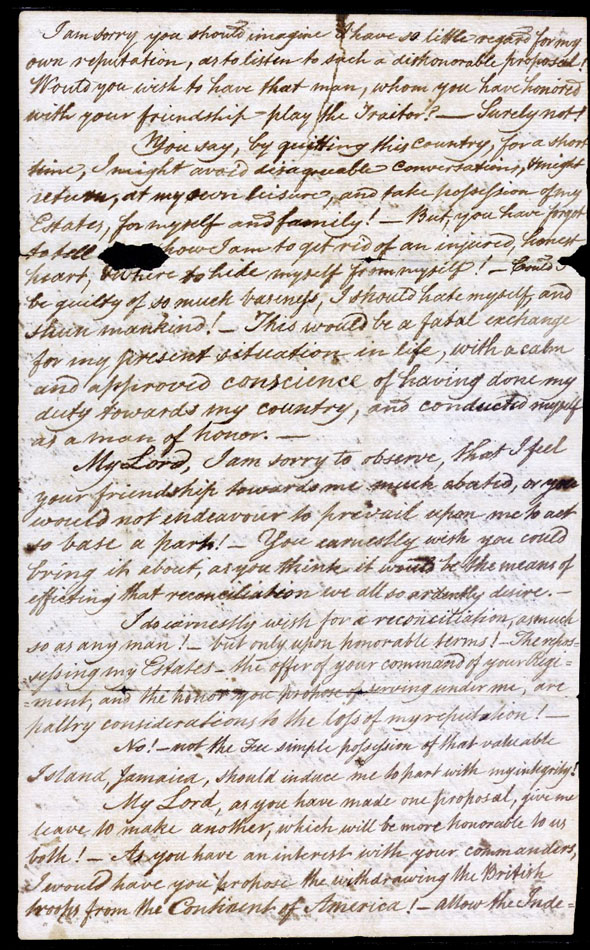 I am sorry you should imagine I have so little regard for my
own reputation, as to listen to such a dishonorable proposal!
Would you wish to have that man, whom you have honored
with your friendship – play the Traitor? — Surely not!
You say, by quitting this country, for a short
time, I might avoid disagreeable conversations, & might
return, at my own leisure, and take possession of my
Estates, for myself and family! — But, you have forgot
to tell how I am to get rid of an injured, honest
heart, & where to hide myself from myself! — Could I
be guilty of so much baseness, I should hate myself, and
shun mankind! — This would be a fatal exchange
for my present situation in life, with a calm
and approved conscience of having done my
duty towards my country, and conducted myself
as a man of honor. —
My Lord, I am sorry to observe, that I feel
your friendship towards me much abated, or you
would not endeavour to prevail upon me to act
so base a part! — You earnestly wish you could
bring it about, as you think it would be the means of
effecting that reconciliation we all so ardently desire. —
I do earnestly wish for a reconciliation, as much
so as any man! — but only upon honorable terms! — The repos=
sessing my Estates – the offer of your command of your Regi=
=ment, and the honor you propose of serving under me, are
paltry considerations to the loss of my reputation! —
No! — not the Fee simple possession of that valuable
Island, Jamaica, should induce me to part with my integrity!
My Lord, as you have made one proposal, give me
leave to make another, which will be more honorable to us
both! — As you have an interest with your commanders,
I would have you propose the withdrawing the British
troops from the Continent of America! — allow the Inde=